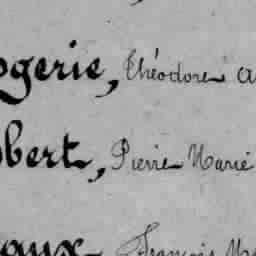 ogerie, Théodore A
bert, Pierre Marie
aux François Ma